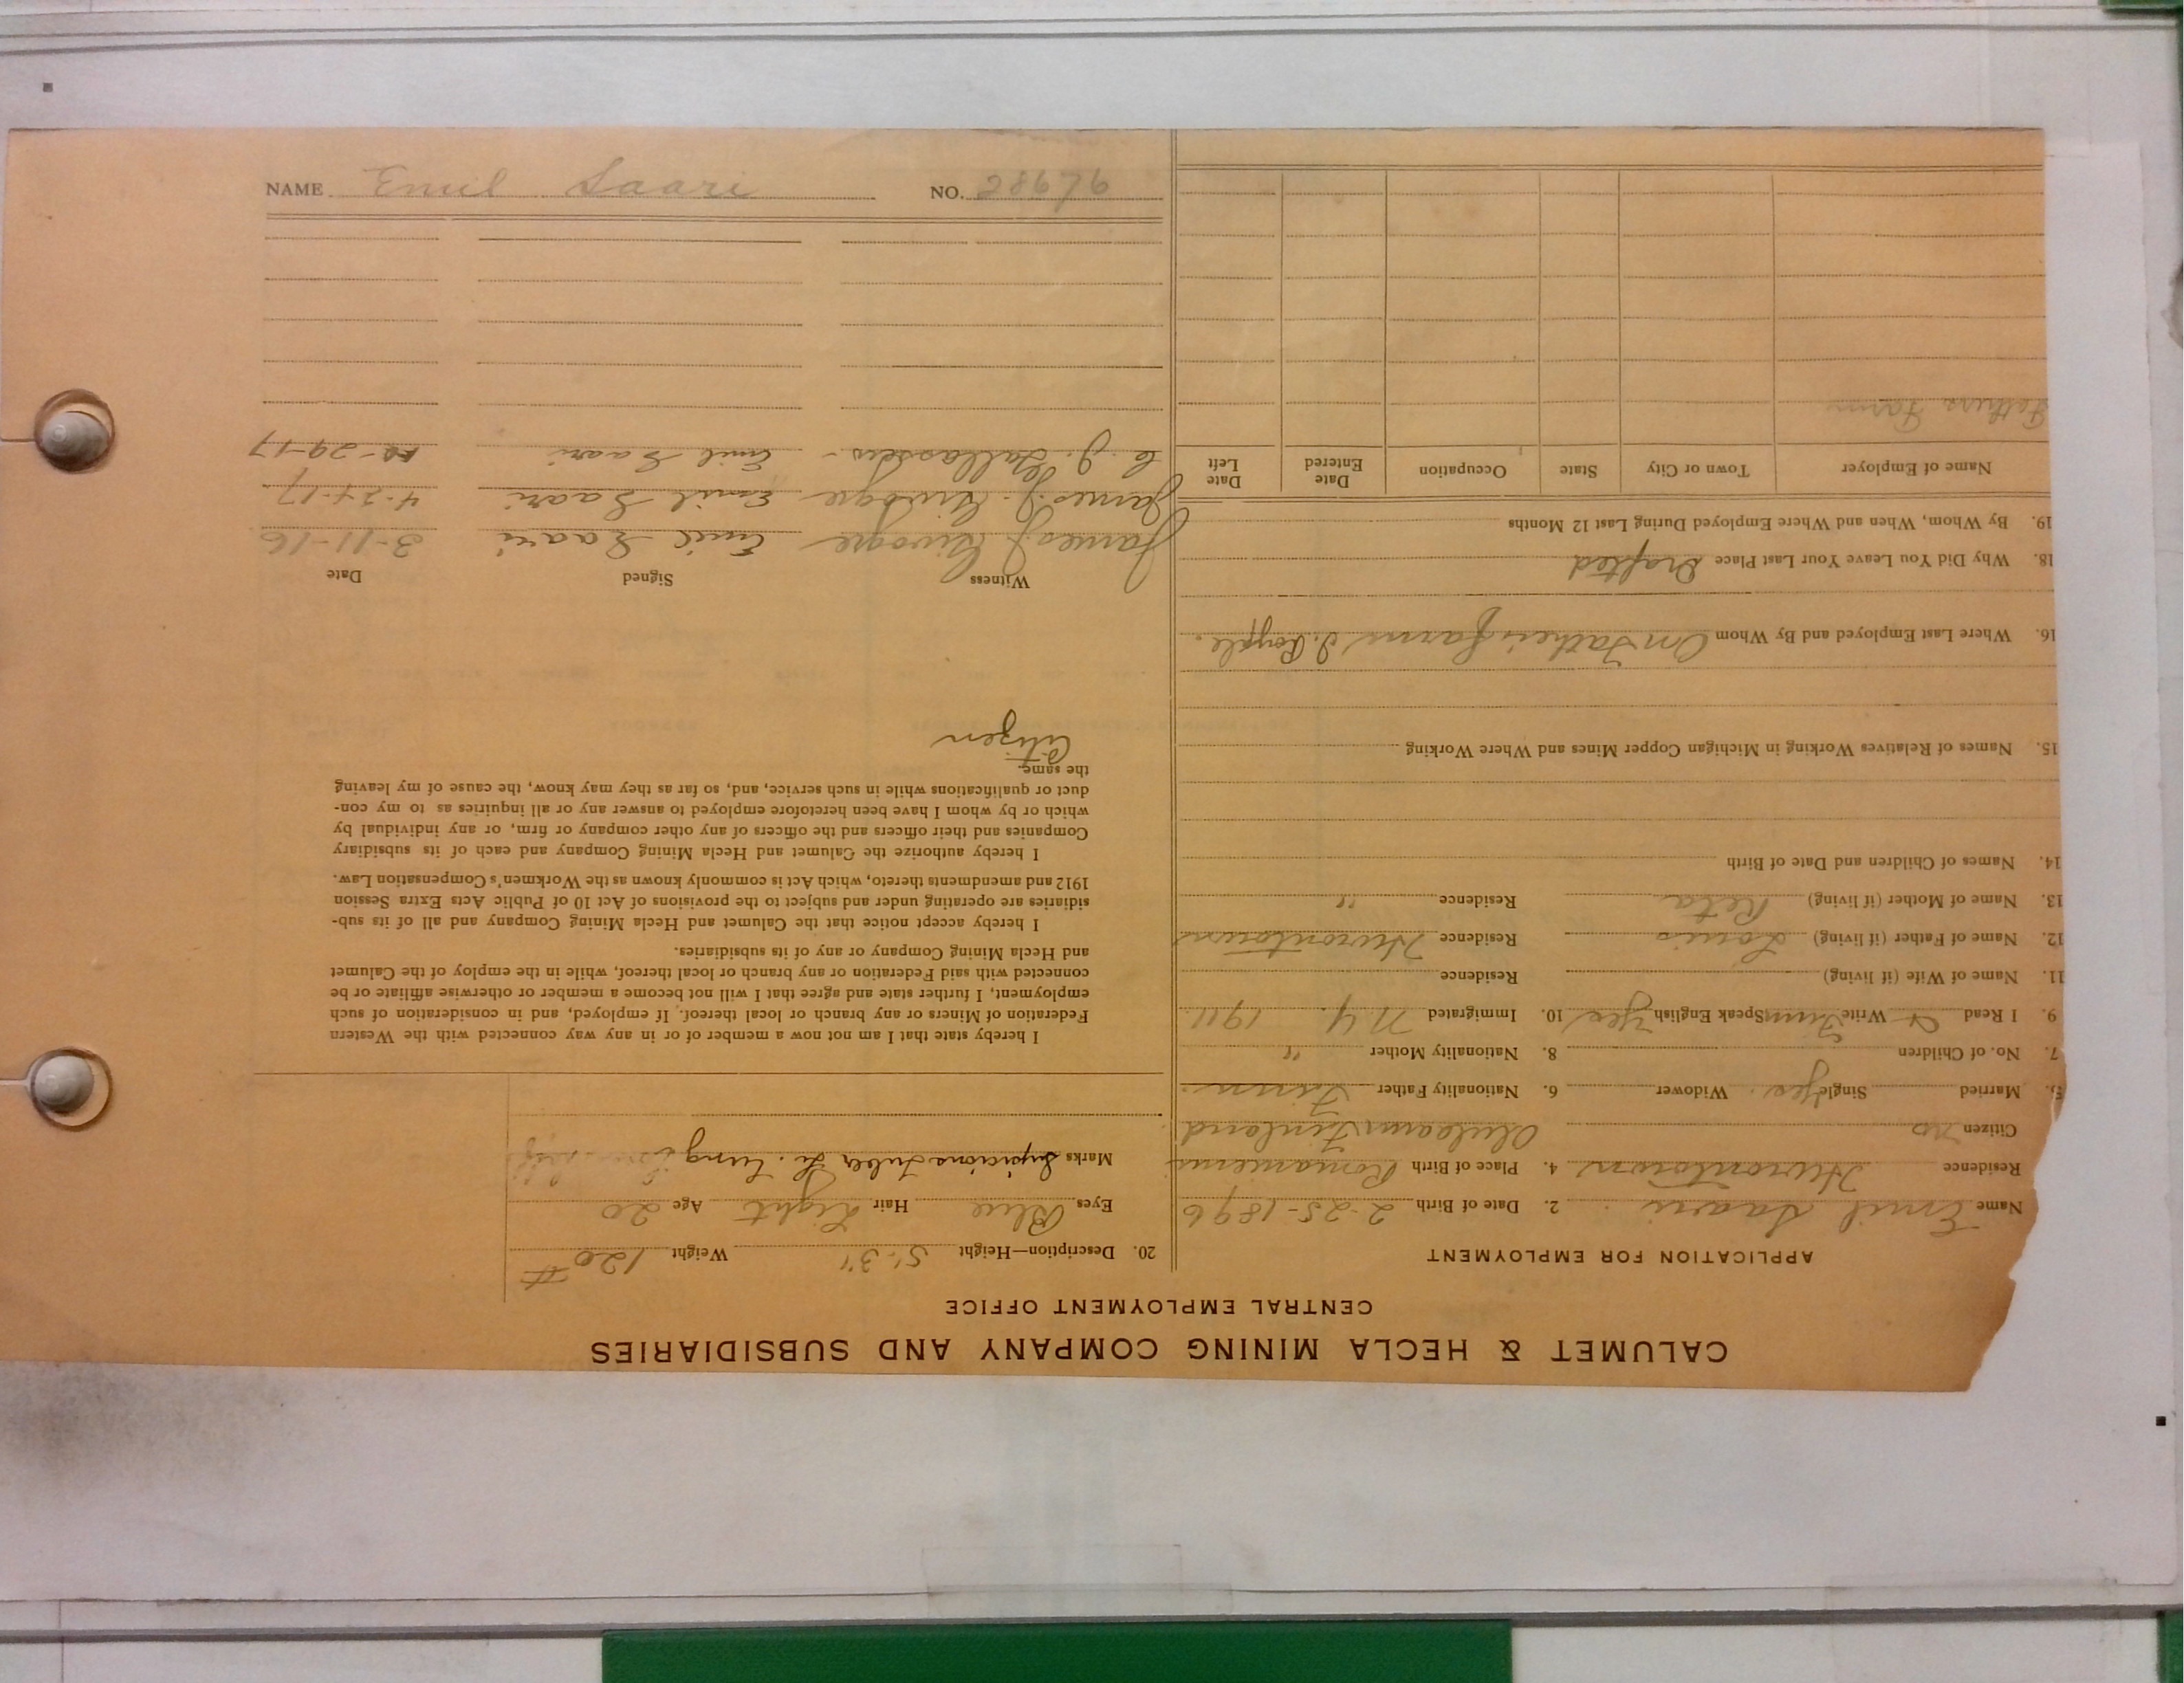 CALUMET & HECLA MINING COMPANY AND SUBSIDIARIES
CENTRAL EMPLOYMENT OFFICE
APPLICATION FOR EMPLOYMENT
Name Emil Saari 2. Date of Birth 2-25-1896
Residence Hurontown 4. Place of Birth
Citizen no Finland
5. Married Single yes Widower 6. Nationality Father Finn
7. No. of Children 8. Nationality Mother "
9. I Read Write Finn Speak English yes 10. Immigrated N.Y. 1911
11. Name of Wife (if living) Residence
12. Name of Father (if living) Louis Residence Hurontown
13. Name of Mother (if living) Reta Residence "
14. Names of Children and Date of Birth
15. Names of Relatives Working in Michigan Copper Mines and Where Working
16. Where Last Employed and By Whom On Father's farm I. Royale.
18. Why Did You Leave Your Last Place Drafted
19. By Whom, When and Where Employed During Last 12 Months
Name of Employer Town or City State Occupation Date Entered Date Left
Fathers Farm
20. Description—Height 5'-3" Weight 120 #
Eyes Blue Hair Light Age 20
Marks Suspicious Tuber Lung
I hereby state that I am not now a member of or in any way connected with the Western
Federation of Miners or any branch or local thereof. If employed, and in consideration of such
employment, I further state and agree that I will not become a member or otherwise affiliate or be
connected with said Federation or any branch or local thereof, while in the employ of the Calumet
and Hecla Mining Company or any of its subsidiaries.
I hereby accept notice that the Calumet and Hecla Mining Company and all of its sub-
sidiaries are operating under and subject to the provisions of Act 10 of Public Acts Extra Session
1912 and amendments thereto, which Act is commonly known as the Workmen's Compensation Law.
I hereby authorize the Calumet and Hecla Mining Company and each of its subsidiary
Companies and their officers and the officers of any other company or firm, or any individual by
which or by whom I have been heretofore employed to answer any or all inquiries as to my con-
duct or qualifications while in such service, and, so far as they may know, the cause of my leaving
the same.
Citizen
Witness Signed Date
James J. Emil Saari 3-11-16
James J. Emil Saari 4-24-17
C. J. Emil Saari -29-17
NAME Emil Saari NO. 28676